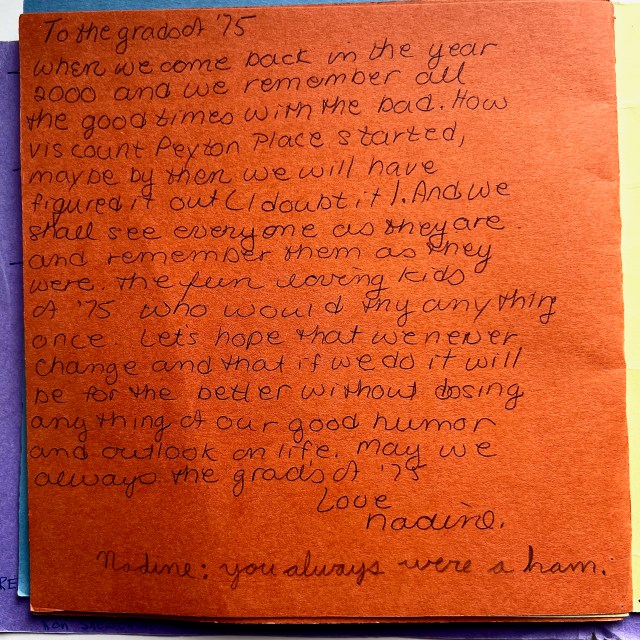 To the grads of '75
when we come back in the year
2000 and we remember all
the good times with the bad. How
viscount Peyton Place started,
maybe by then we will have
figured it out (I doubt it). And we
shall see everyone as they are
and remember them as they
were. The fun loving kids
of '75 who would try anything
once. Let's hope that we never
change and that if we do it will
be for the better without losing
any thing of our good humor
and outlook on life. May we
always the grads of '75
Love
nadine.
Nadine: you always were a ham.